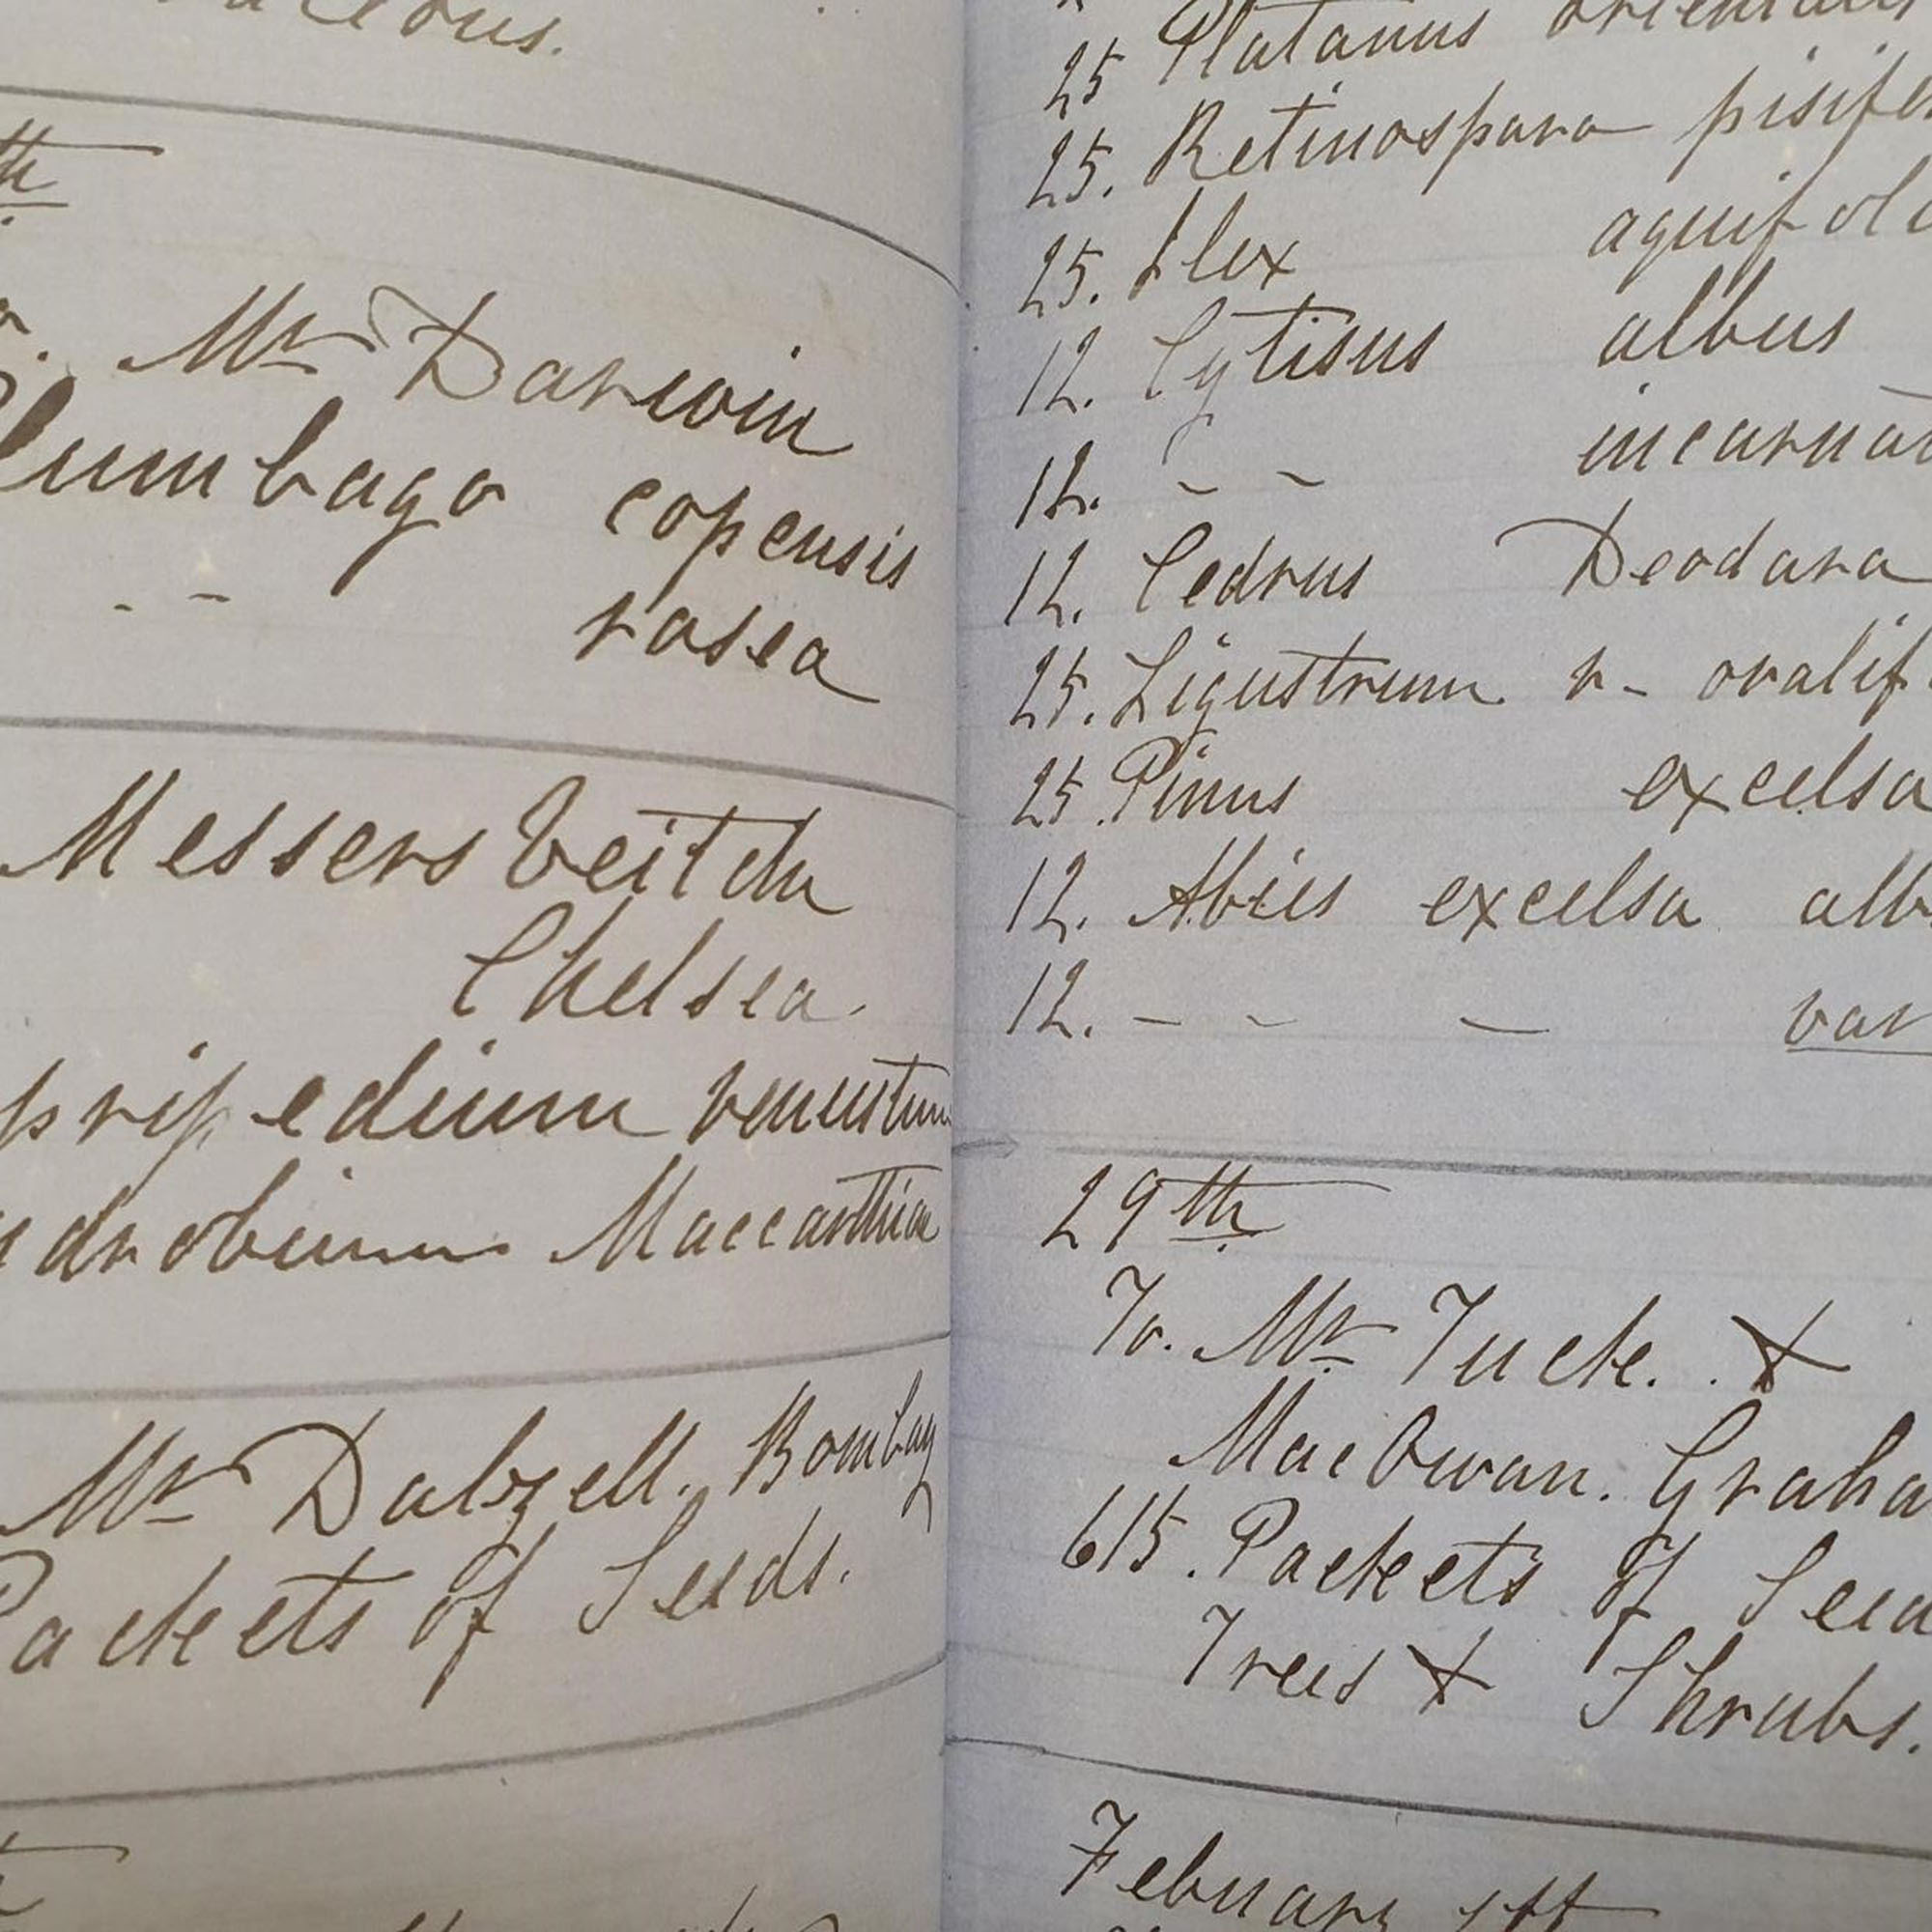 th
Mr Darwin
lumbago capensis
- - rosea
Messers Veitch
Chelsea.
pripedium venustum
ndrobium Maccarthiae
Mr Dalzell. Bombay
Packets of Seeds.
25 Platanus orientalis
25. Retinospara pisife
25. Ilex aquifoli
12. Cytisus albus
12. - - incarnat
12. Cedrus Deodara
25. Ligustrum v- ovalif
25. Pinus excelsa
12. Abies excelsa alb
12. - - - var
29th
To. Mr Tuck. &
MacOwan. Graha
615. Packets of Seed
Trees & Shrubs.
February 1st